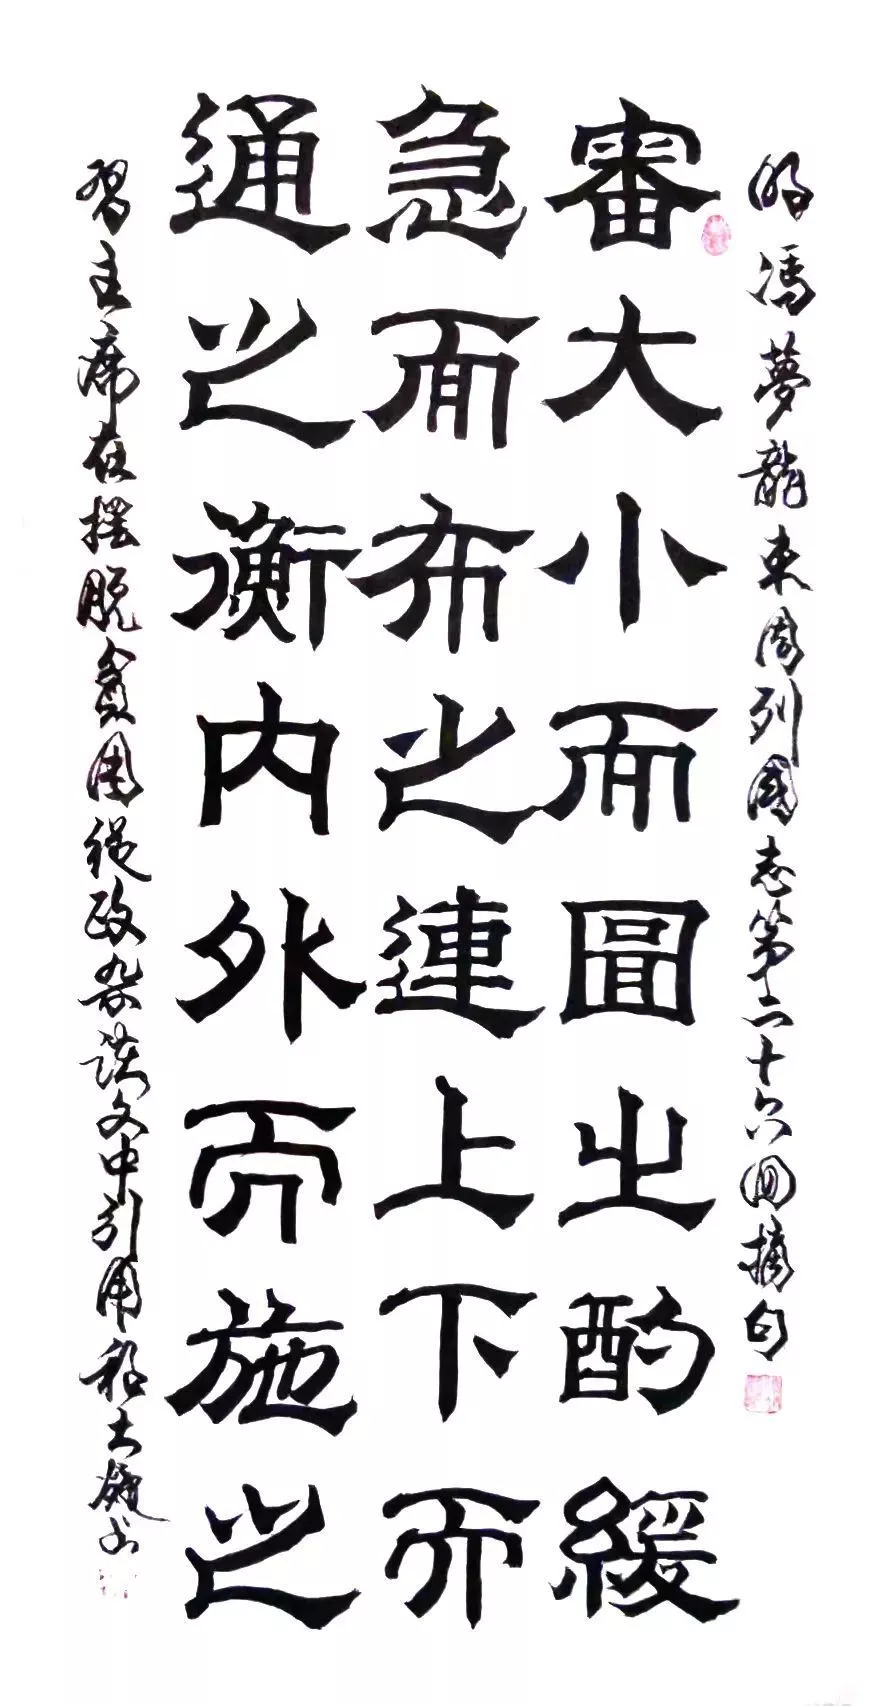 明馮夢龍東周列國志第二十六回摘句
審大小而圖之酌緩
急而布之連上下而
通之衡內外而施之
習主席在摆脱貧困從政杂談文中引用